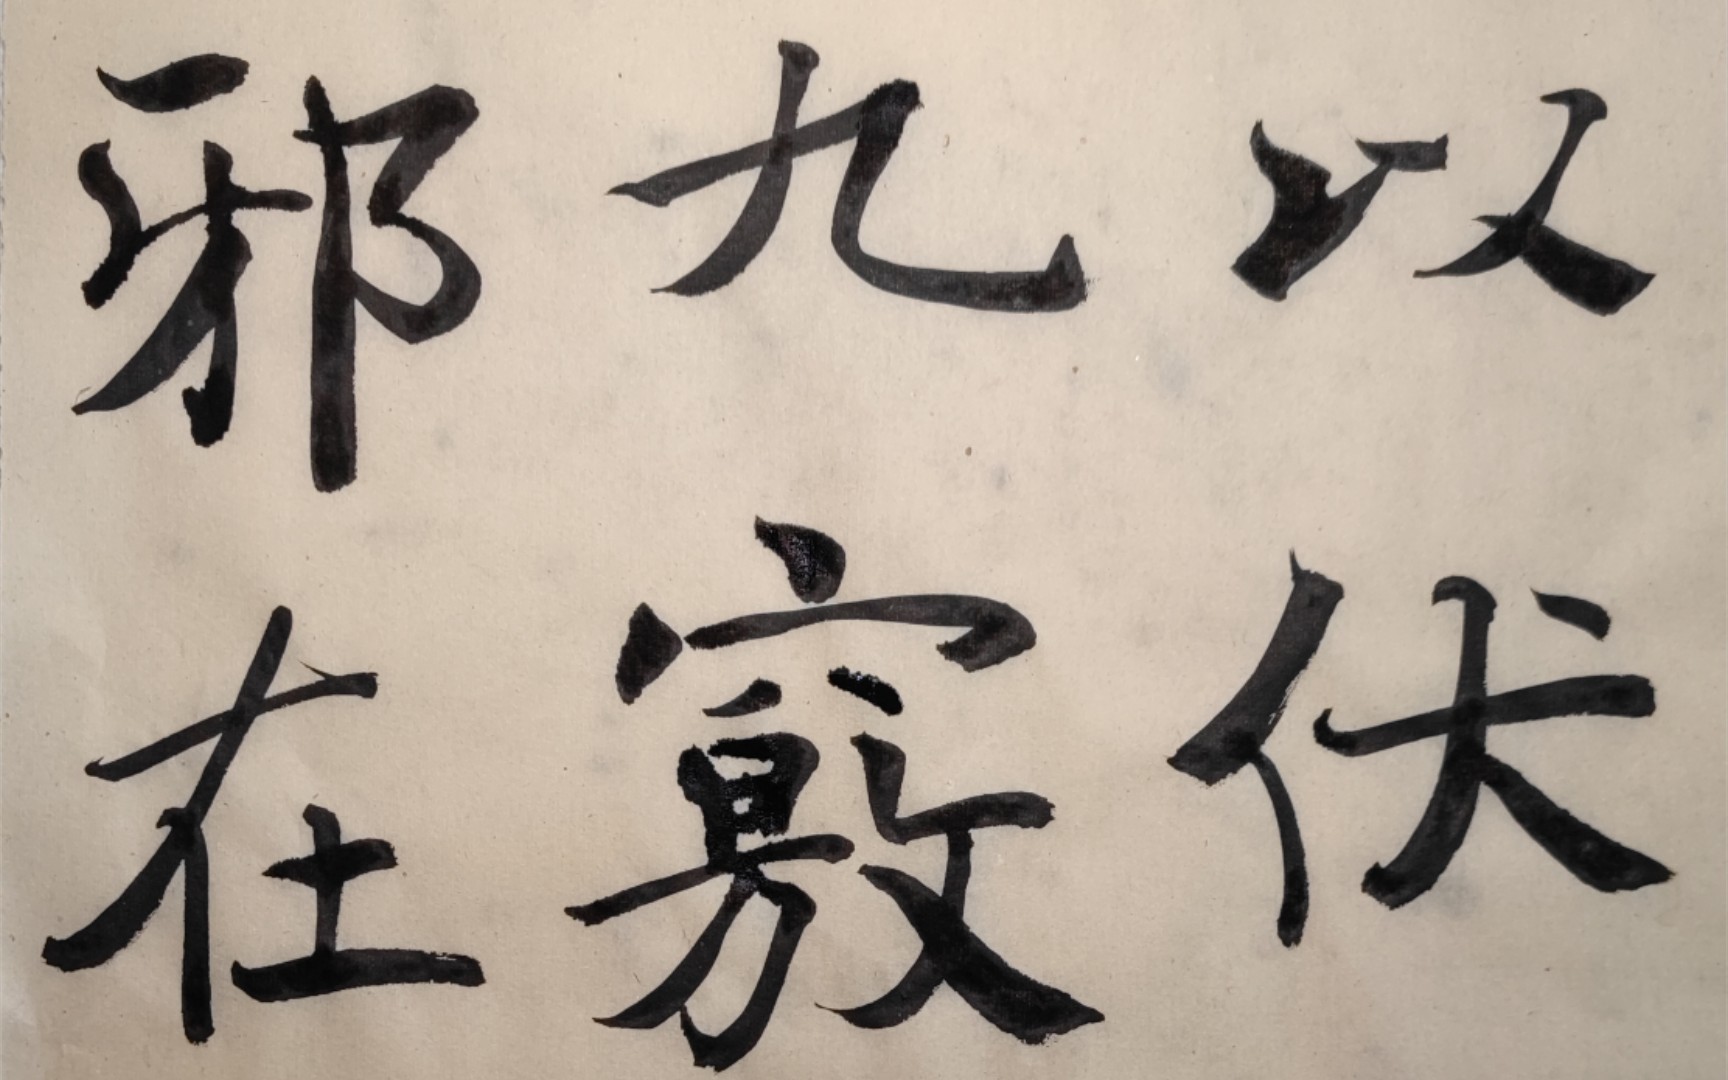 以伏
九竅
邪在